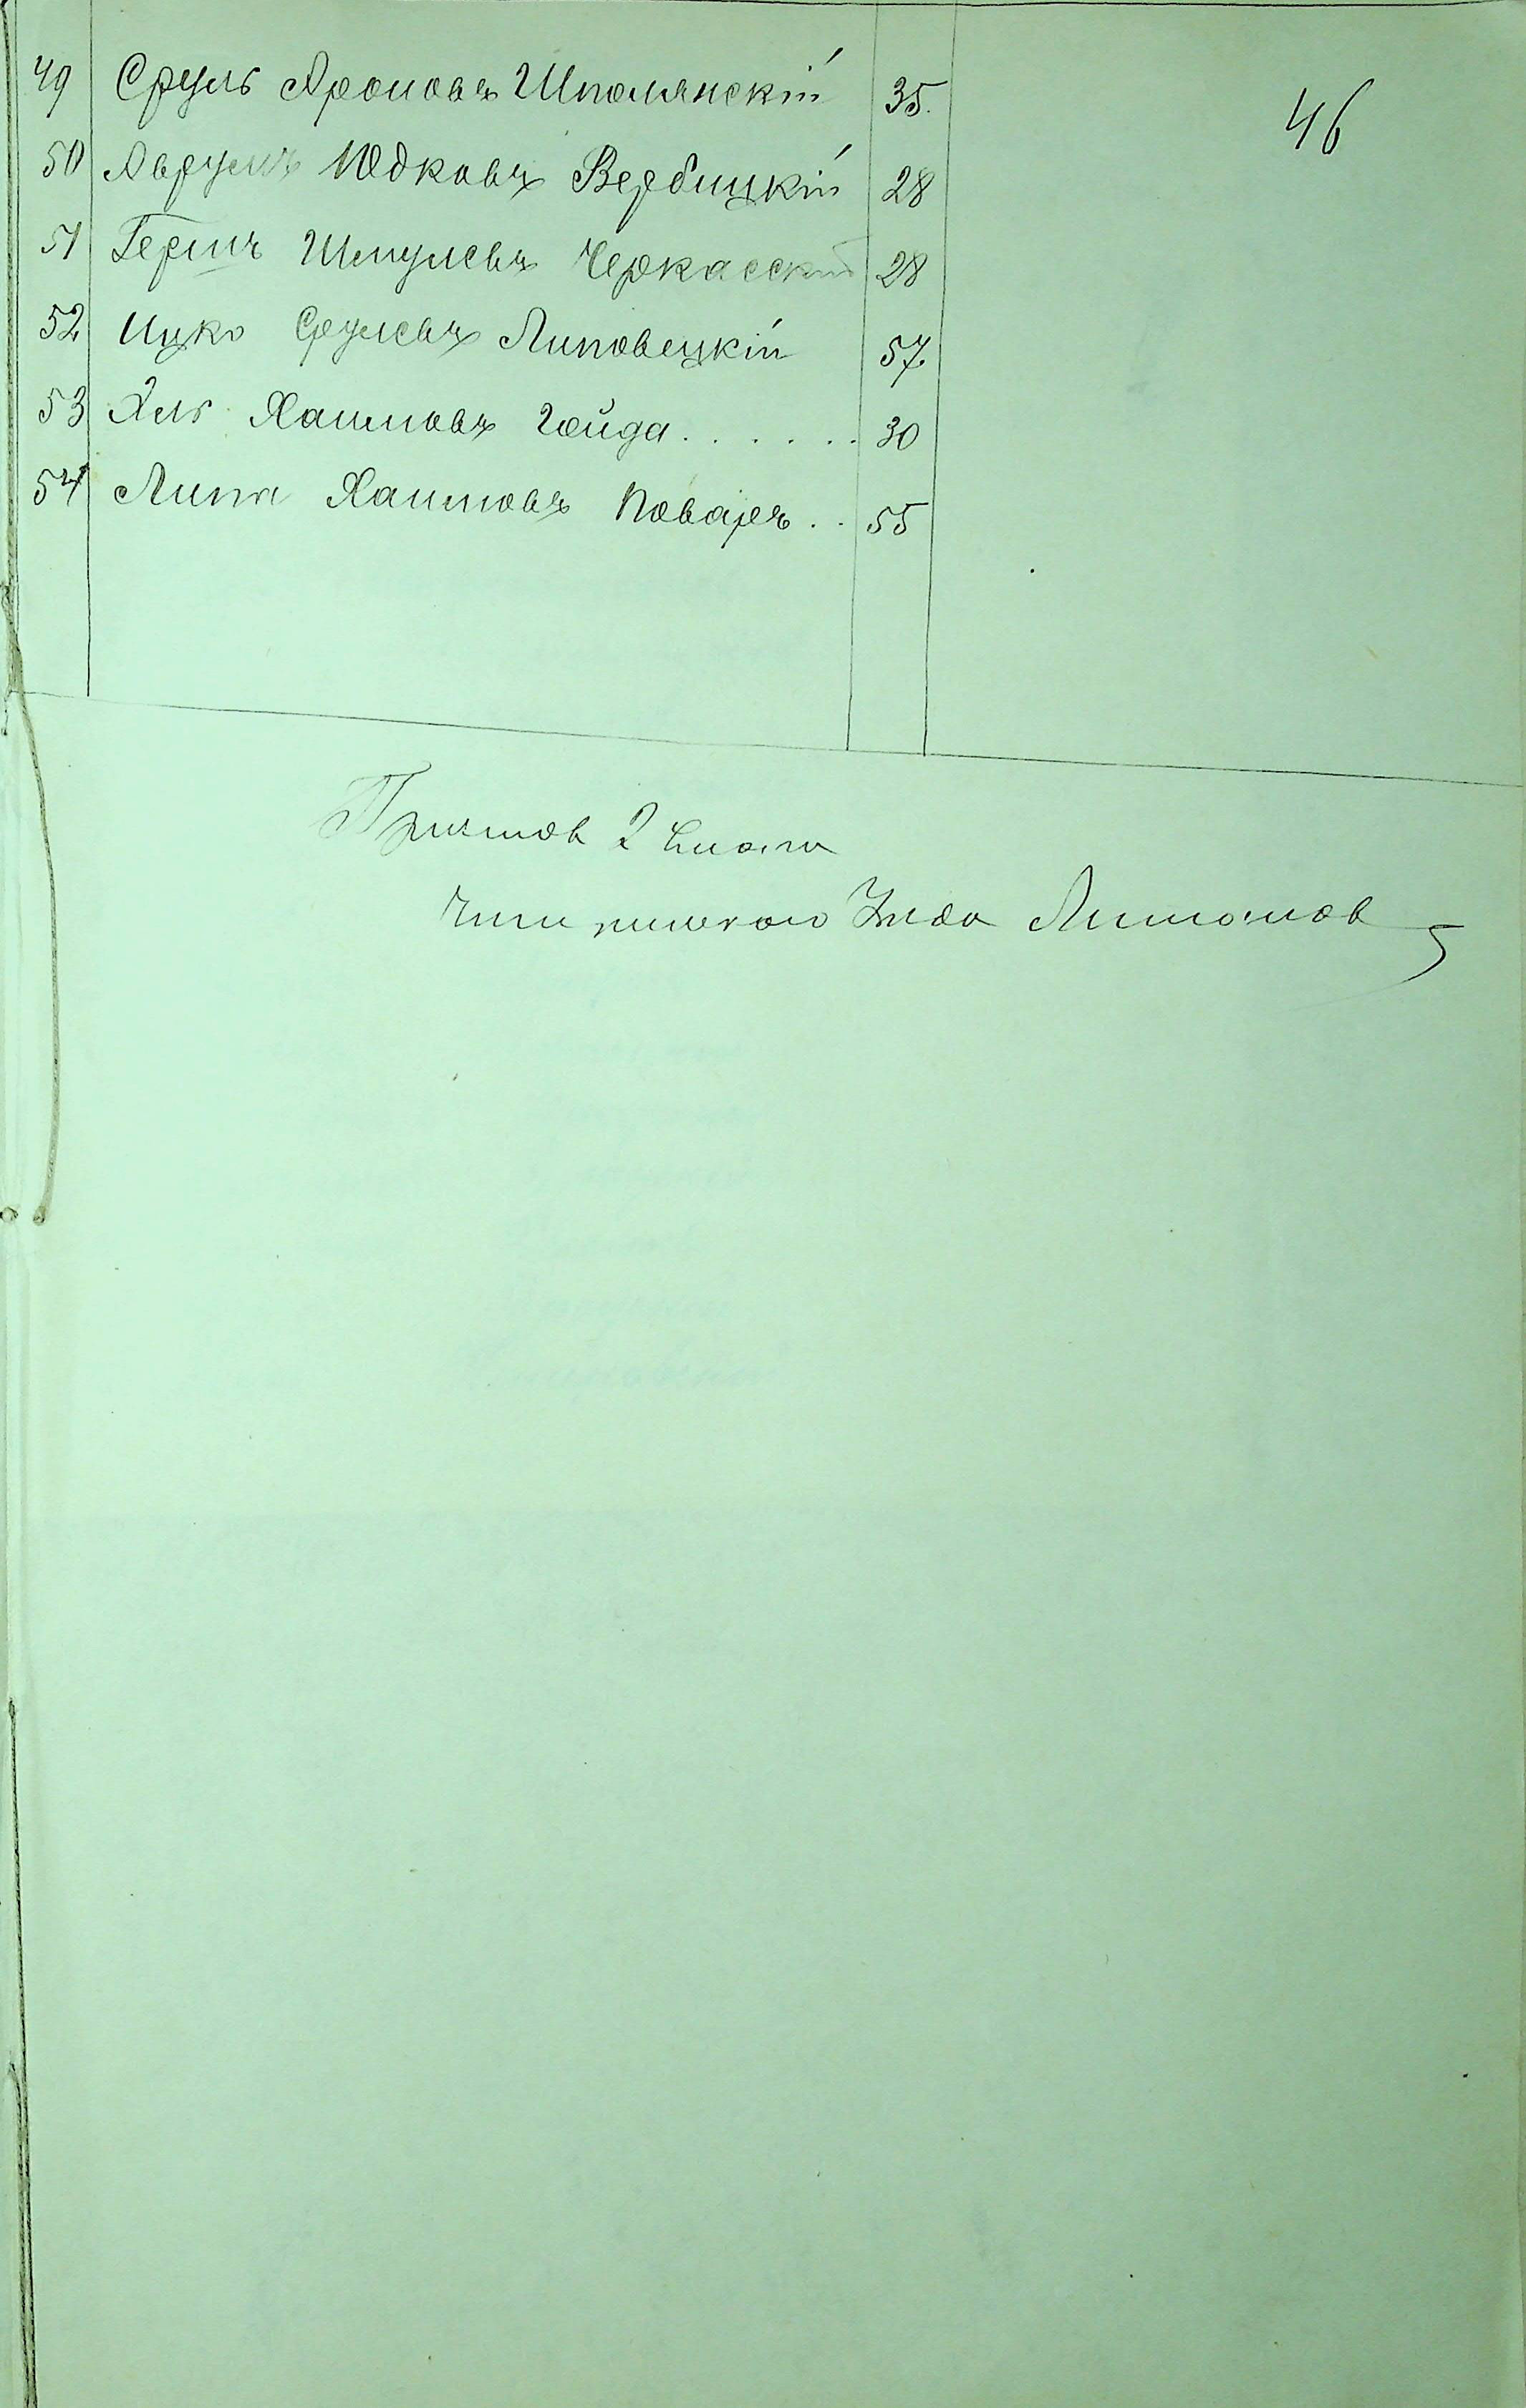 46
49 Сруль Ароновъ Шполянскій 35.
50 Аврумъ Юдковъ Вербицкій 28
51 Гершъ Шмулевъ Черкасскій 28
52 Ицко Срулевъ Липовецкій 57
53 Хаимовъ Гойда...... 30
54 Липа Хаимовъ Поваръ.. 55
Пристав 2 Стана
Чигиринского Уезда Лиманов